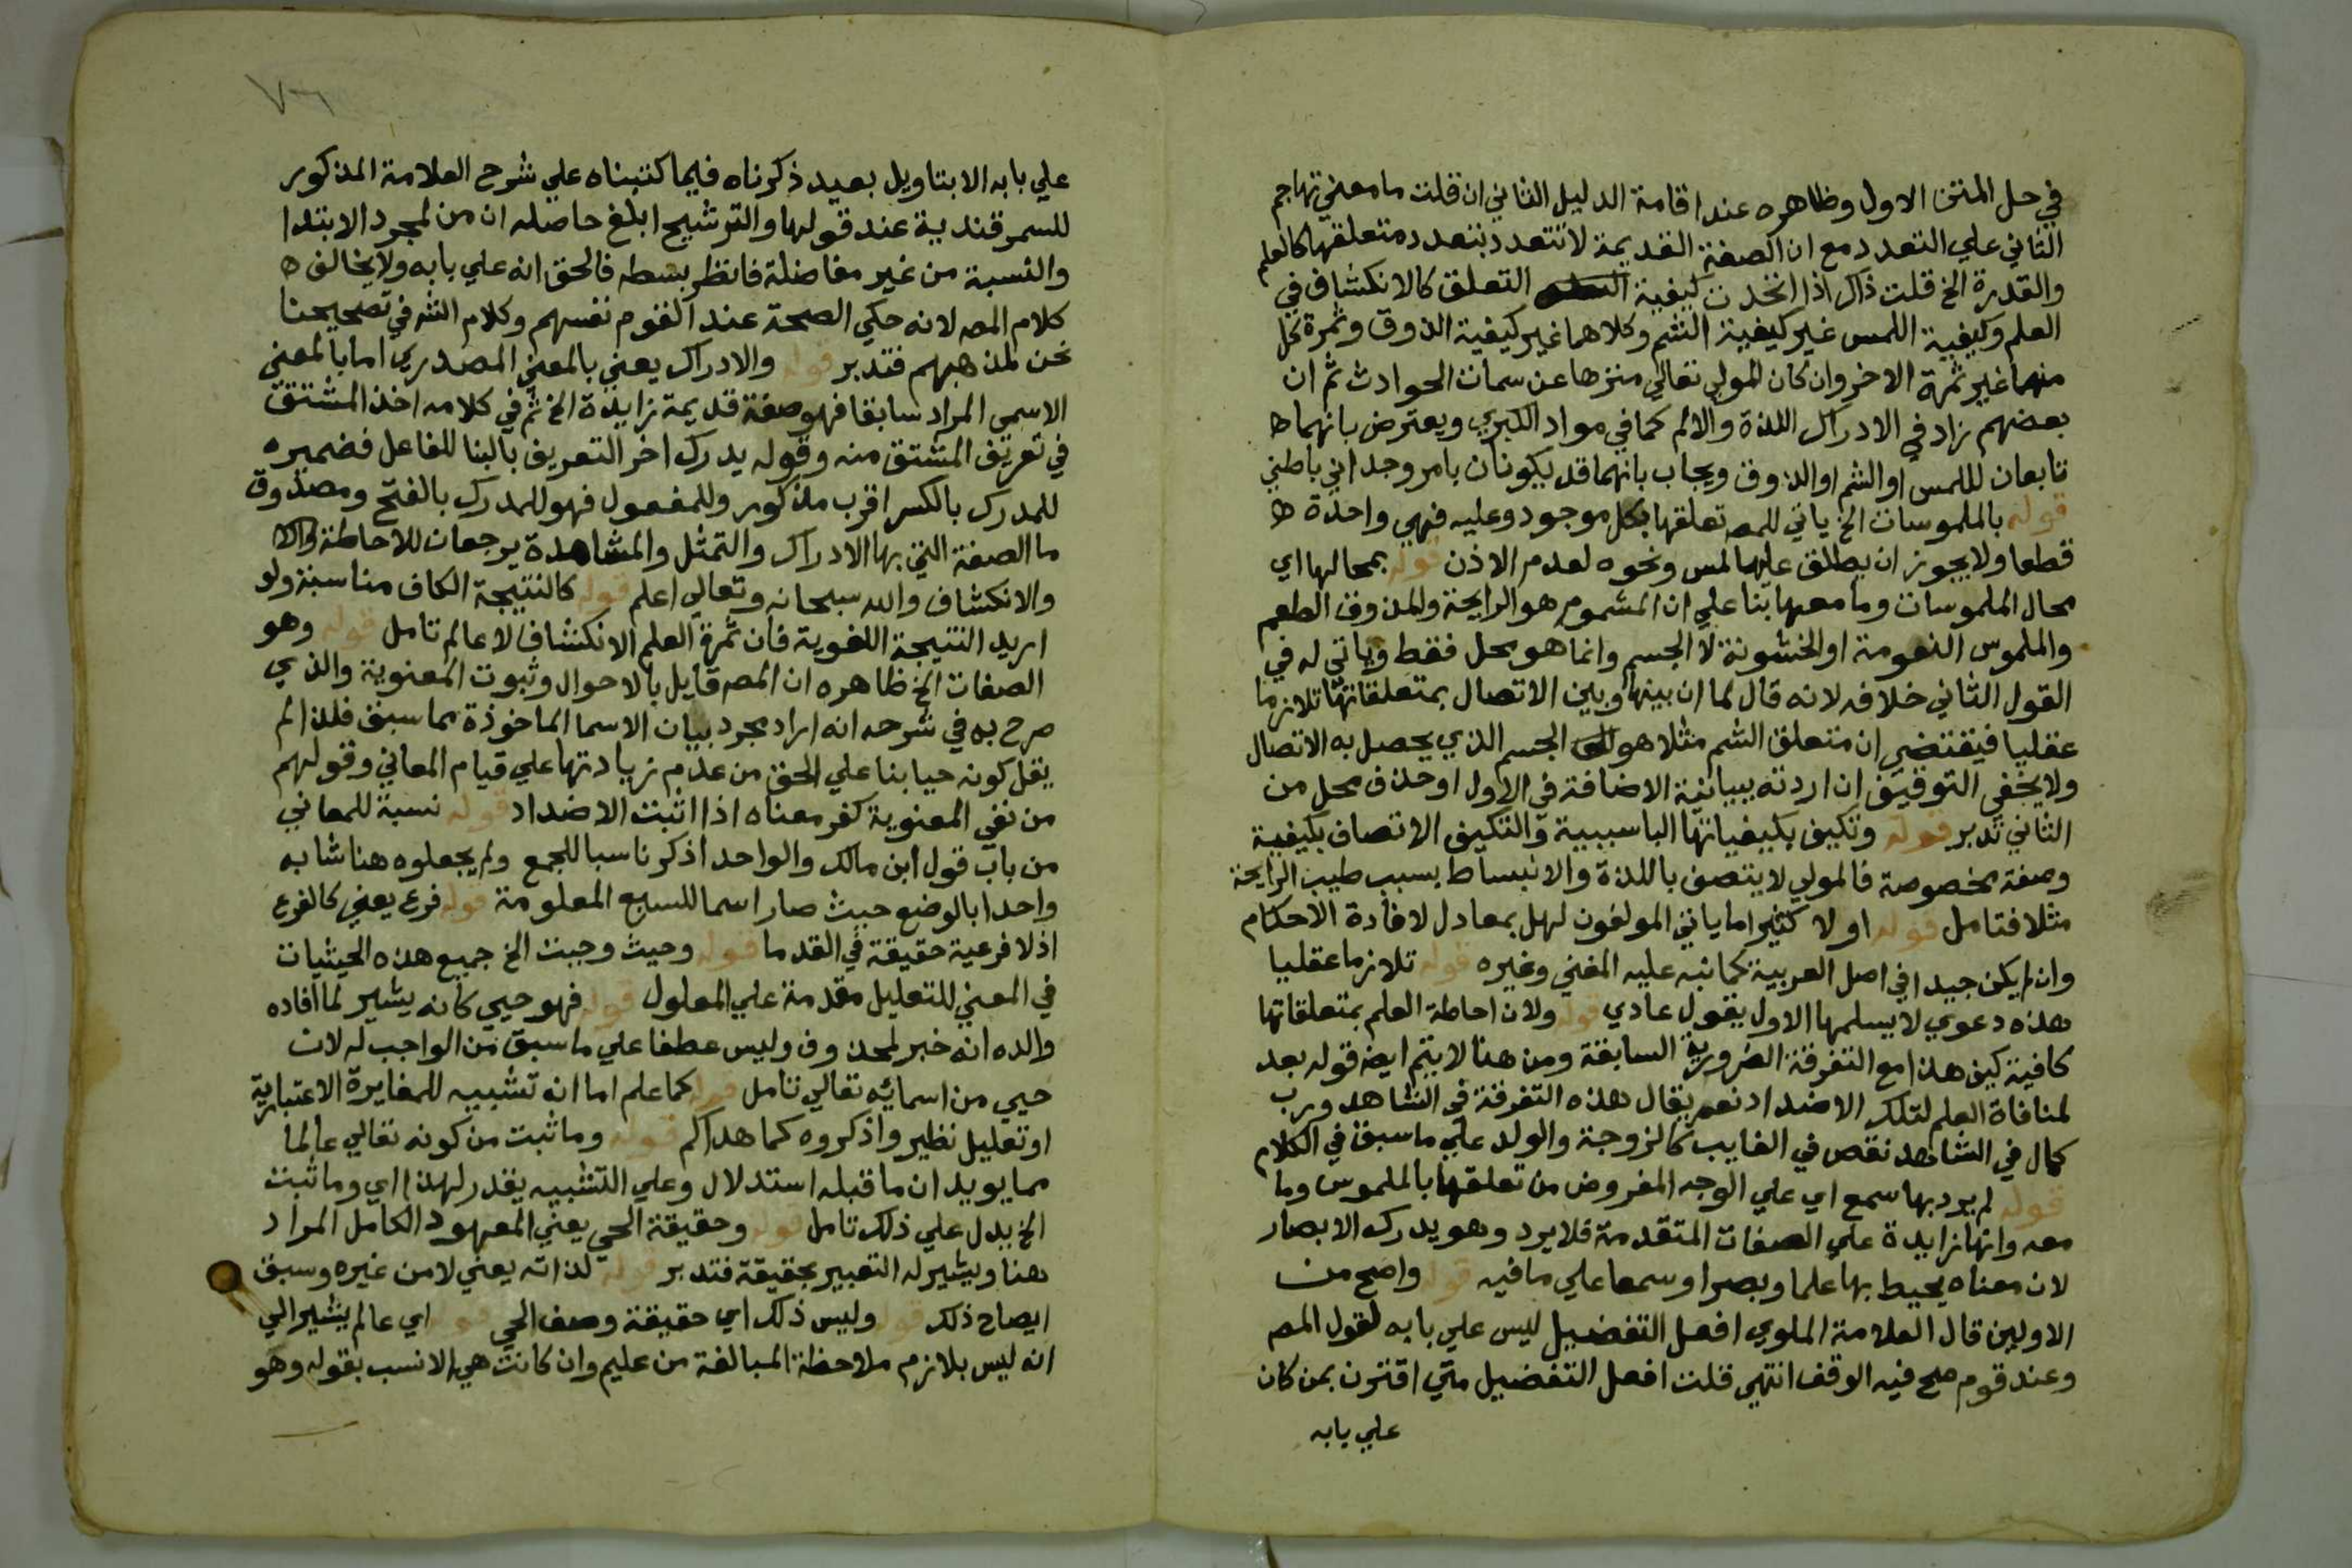 في حل المتن الاول وظاهره عند اقامة الدليل الثاني ان قلت ما معني تهاجم
الثاني علي التعدد مع ان الصفة القديمة لا تتعدد بتعدد متعلقها كالعلم
والقدرة الخ قلت ذاك اذا اتحدت كيفية التعلق كالانكشاف في
العلم وكيفية اللمس غير كيفية الشم وكلاهما غير كيفية الذوق وثمرة كل
منهما غير ثمرة الاخر وان كان المولي تعالي منزها عن سمات الحوادث ثم ان
بعضهم زاد في الادراك اللذة والالم كما في مواد الكبري ويعترض بانهما
تابعان لللمس او الشم او الذوق ويجاب بانهما قد يكونان بامر وجداني باطني
قوله بالملموسات الخ ياتي للمصـ تعلقها بكل موجود وعليه فهي واحدة
قطعا ولا يجوز ان يطلق عليها لمس ونحوه لعدم الاذن قوله بمحالها اي
محال الملموسات وما معها بنا علي ان المشموم هو الرايحة والمذوق الطعم
والملموس النعومة او الخشونة لا الجسم وانما هو محل فقط وياتي له في
القول الثاني خلافه لانه قال لما ان بينها وبين الاتصال بمتعلقاتها تلازما
عقليا فيقتضي ان متعلق الشم مثلا هو الجسم الذي يحصل به الاتصال
ولا يخفي التوفيق ان اردته ببيانية الاضافة في الاول او حذف محل من
الثاني تدبر قوله وتكيف بكيفياتها البا سببية والتكيف الاتصاف بكيفية
وصفة مخصوصة فالمولي لا يتصف باللذة والانبساط بسبب طيب الرايحة
مثلا فتامل قوله او لا كثيرا ما ياتي المولفون لهل بمعادل لافادة الاحكام
وان لم يكن جيدا في اصل العربية كما نبه عليه المغني وغيره قوله تلازما عقليا
هذه دعوي لا يسلمها الاول يقول عادي قوله ولان احاطة العلم بمتعلقاتها
كافية كيف هذا مع التفرقة الضرورية السابقة ومن هنا لا يتم ايضـ قوله بعد
لمنافاة العلم لتلك الاضداد نعم يقال هذه التفرقة في الشاهد ورب
كمال في الشاهد نقص في الغايب كالزوجة والولد علي ما سبق في الكلام
قوله لم يرد بها سمع اي علي الوجه المفروض من تعلقها بالملموس وما
معه وانها زايدة علي الصفات المتقدمة فلا يرد وهو يدرك الابصار
لان معناه يحيط بها علما وبصرا وسمعا علي ما فيه قوله واصح من
الاولين قال العلامة الملوي افعل التفضيل ليس علي بابه لقول المصـ
وعند قوم صح فيه الوقف انتهي قلت افعل التفضيل متي اقترن بمن كان
علي بابه
٧٦
علي بابه الا بتاويل بعيد ذكرناه فيما كتبناه علي شرح العلامة المذكور
للسمرقندية عند قولها والترشيح ابلغ حاصله ان من لمجرد الابتدا
والنسبة من غير مفاضلة فانظر بسطه فالحق انه علي بابه ولا يخالف
كلام المصـ لانه حكي الصحة عند القوم نفسهم وكلام الشـ في تصحيحنا
نحن لمذهبهم فتدبر قوله والادراك يعني بالمعني المصدري اما بالمعني
الاسمي المراد سابقا فهو صفة قديمة زايدة الخ ثم في كلامه اخذ المشتق
في تعريف المشتق منه وقوله يدرك اخر التعريف بالبنا للفاعل فضميره
للمدرك بالكسر اقرب مذكور وللمفعول فهو للمدرك بالفتح ومصدوق
ما الصفة التي بها الادراك والتمثل والمشاهدة يرجعان للاحاطة
والانكشاف والله سبحانه وتعالي اعلم قوله كالنتيجة الكاف مناسبة ولو
اريد النتيجة اللغوية فان ثمرة العلم الانكشاف لا عالم تامل قوله وهو
الصفات الخ ظاهره ان المصـ قايل بالاحوال وثبوت المعنوية والذي
صرح به في شرحه انه اراد مجرد بيان الاسما الماخوذة مما سبق فلذا لم
يقل كونه حيا بنا علي الحق من عدم زيادتها علي قيام المعاني وقولهم
من نفي المعنوية كفر معناه اذا اثبت الاضداد قوله نسبة للمعاني
من باب قول ابن مالك والواحد اذكر ناسبا للجمع ولم يجعلوه هنا شابه
واحدا بالوضع حيث صار اسما للسبع المعلومة قوله فرع يعني كالفرع
اذ لا فرعية حقيقة في القدما قوله وحيث وجبت الخ جميع هذه الحيثيات
في المعني للتعليل مقدمة علي المعلول قوله فهو حيي كانه يشير لما افاده
والده انه خبر لمحذوف وليس عطفا علي ما سبق من الواجب له لان
حيي من اسمائه تعالي تامل قوله كما علم اما انه تشبيه للمغايرة الاعتبارية
او تعليل نظير واذكروه كما هداكم قوله وما ثبت من كونه تعالي عالما
مما يويد ان ما قبله استدلال وعلي التشبيه يقدر لهذا اي وما ثبت
الخ يدل علي ذلك تامل قوله وحقيقة الحي يعني المعهود الكامل المراد
هنا ويشير له التعبير بحقيقة فتدبر قوله لذاته يعني لا من غيره وسبق
ايضاح ذلك قوله وليس ذلك اي حقيقة وصف الحي قوله اي عالم يشير الي
انه ليس بلازم ملاحظة المبالغة من عليم وان كانت هي الانسب بقوله وهو